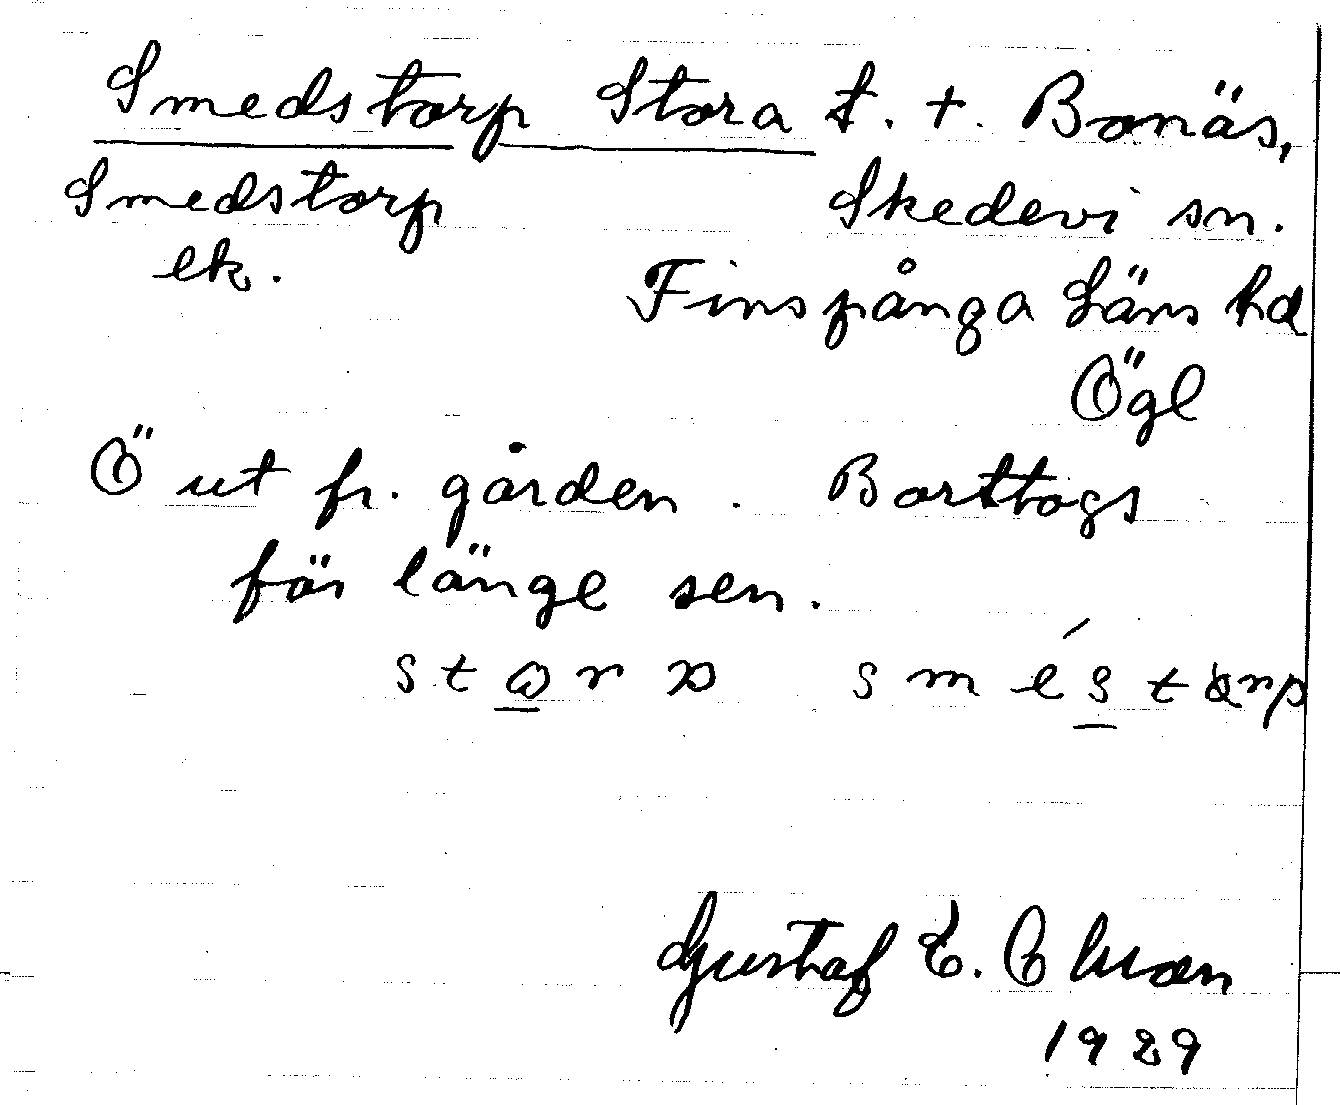 Smedstorp Stora f. t. Bonäs,
Smedstorp Skedevi sn.
ek. Finspånga Läns hd
Ögl
Ö ut fr. gården. Borttogs
för länge sen.
Gustaf E. Olsson
1929